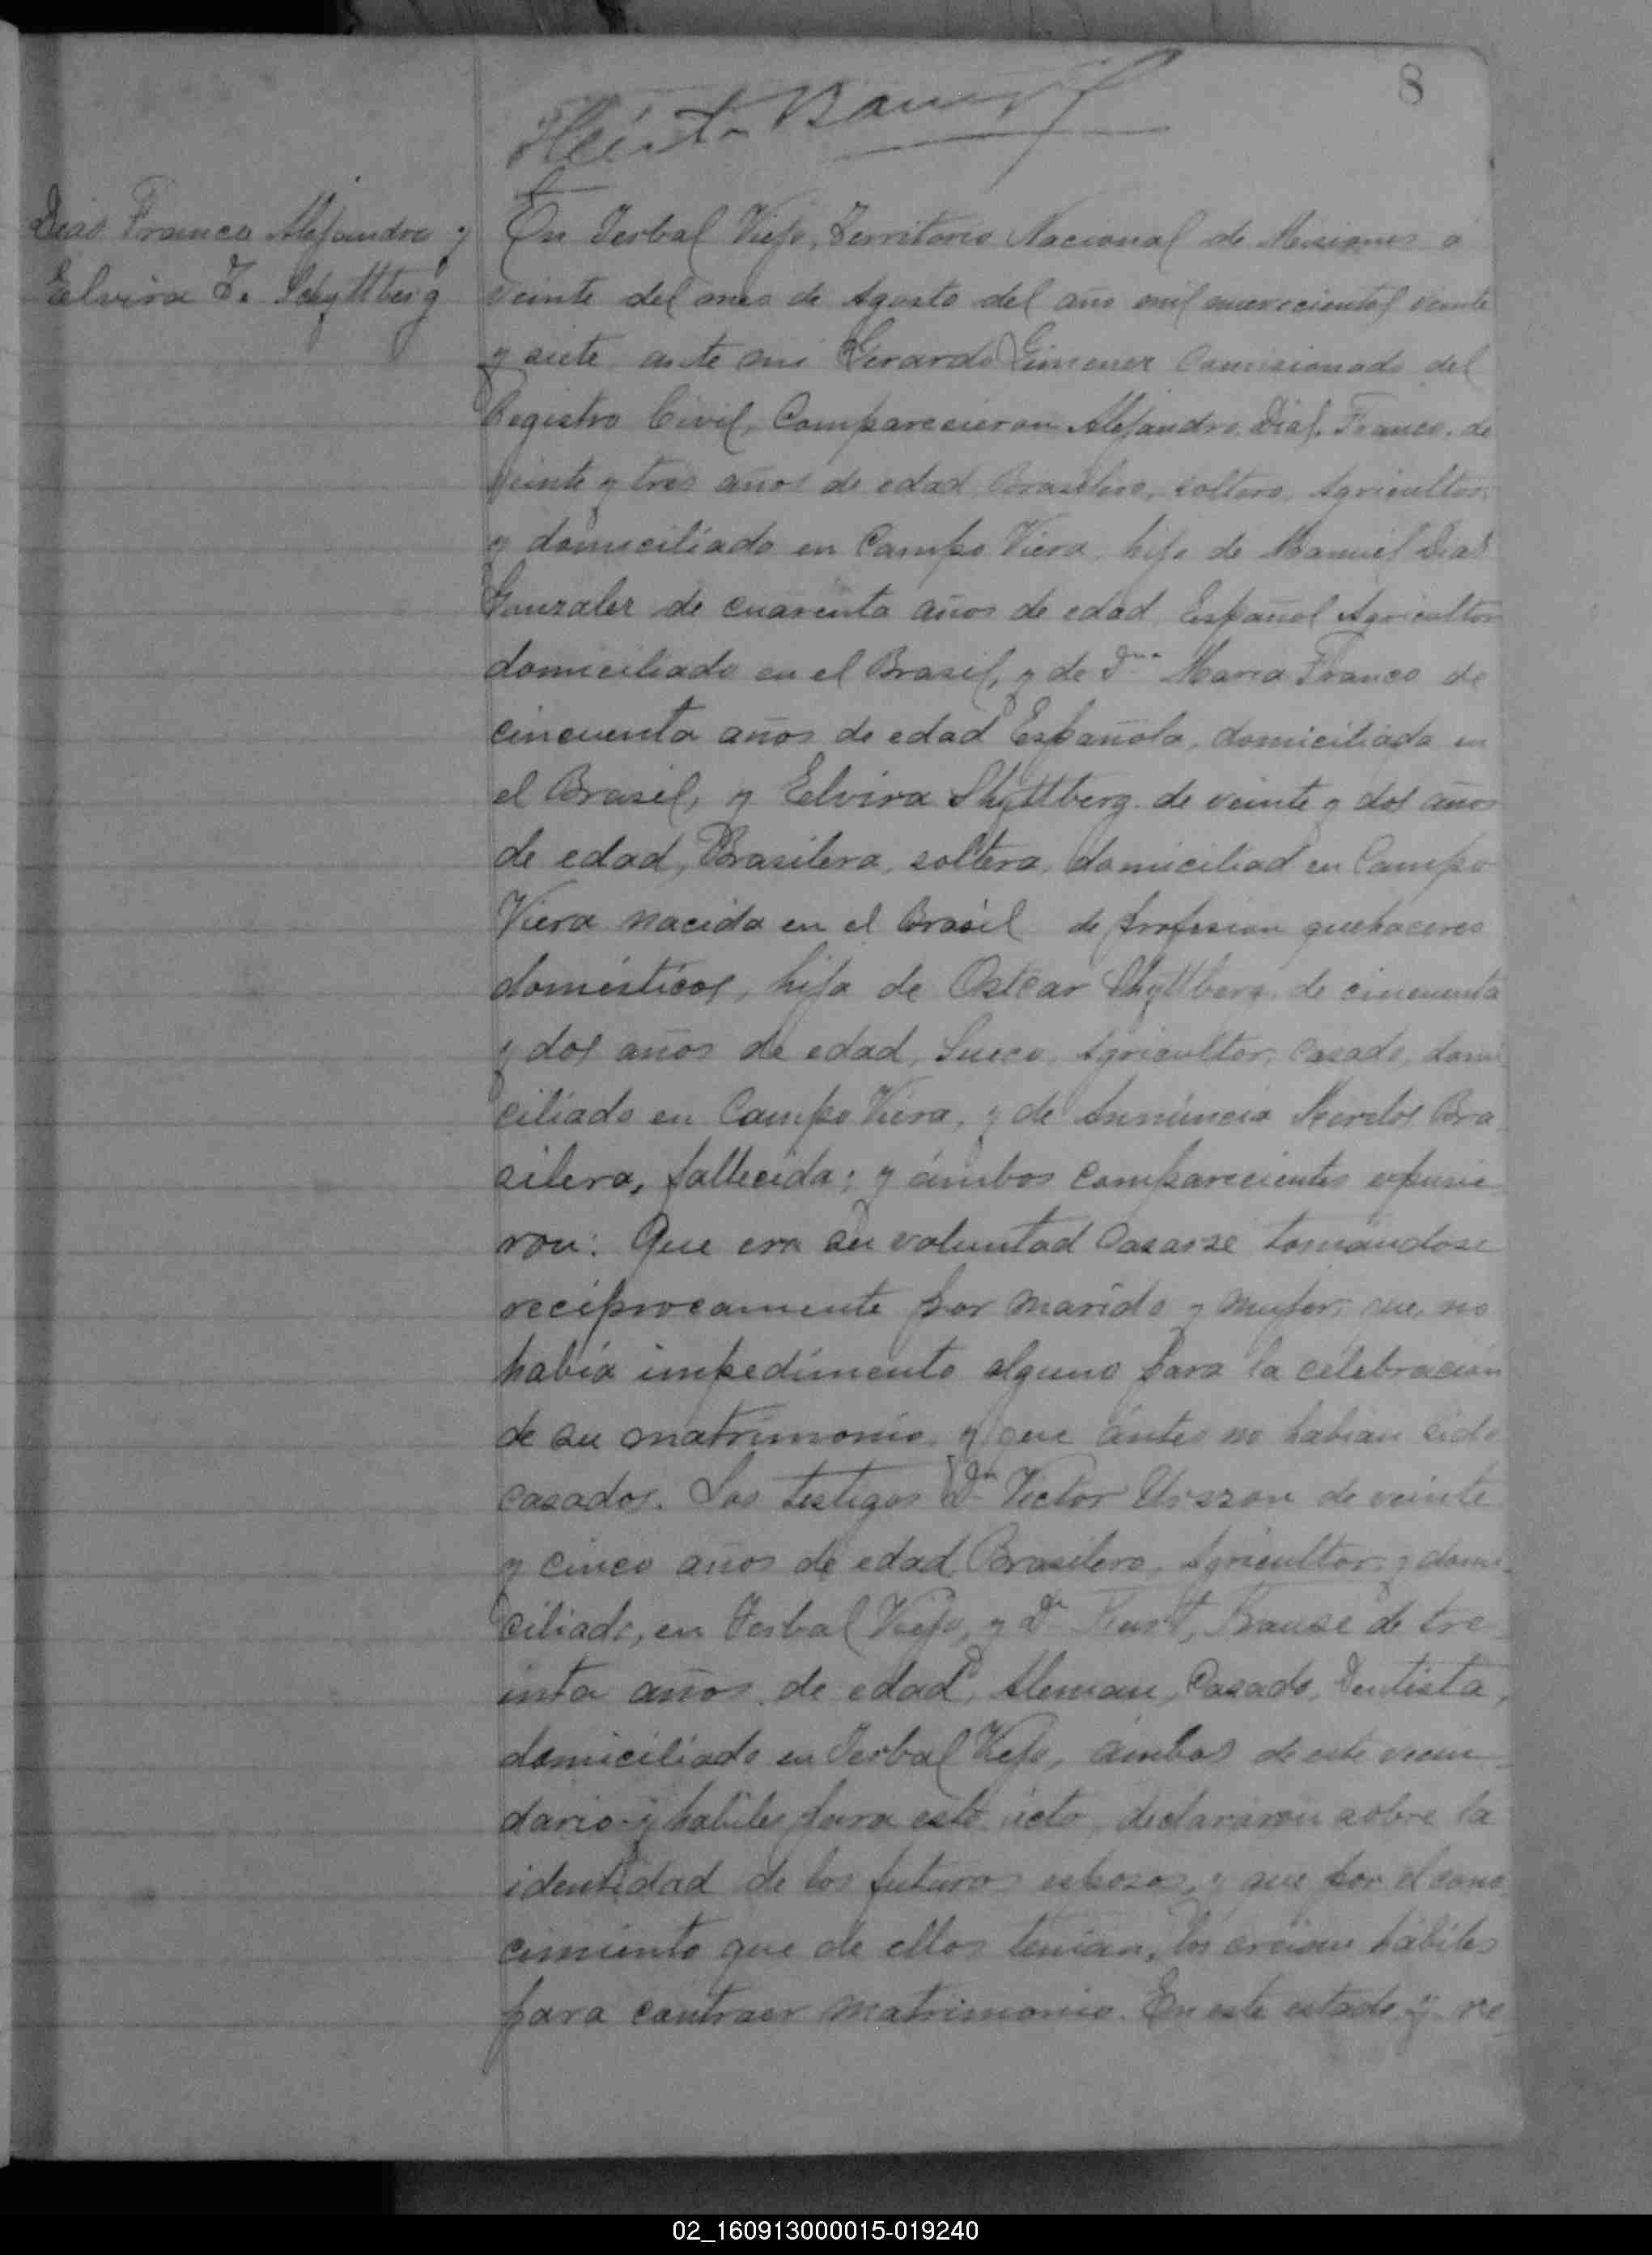 8
Dias Franco Alejandro y
Elvira F. Schyttberg
En Yerbal Viejo, Territorio Nacional de Misiones á
veinte del mes de Agosto del año mil nuevecientos veinte
y siete ante mi Gerardo Gimenez Comisionado del
Registro Civil, Comparecieron Alejandro Dias Franco, de
veinte y tres años de edad, Brasilero, soltero, Agricultor,
y domiciliado en Campo Viera, hijo de Manuel Dias
Gonzalez de cuarenta años de edad, Español Agricultor
domiciliado en el Brasil, y de Dña Maria Franco de
cincuenta años de edad Española, domiciliada en
el Brasil, y Elvira Shyttberg de veinte y dos años
de edad, Brasilera, soltera, domiciliad en Campo
Viera nacida en el Brasil de profesion quehaceres
domésticos, hija de Oscar Shyttberg de cincuenta
y dos años de edad, Sueco, Agricultor, casado, domi
ciliado en Campo Viera, y de Annuncia Bra
silera, fallecida; y ámbos comparecientes expusie
ron: Que era su voluntad casarse tomándose
recíprocamente por marido y mujer, que no
había impedimento alguno para la celebración
de su matrimonio, y que ántes no habian sido
casados. Los testigos Dn Victor de veinte
y cinco años de edad Brasilero, Agricultor, y domi-
ciliado, en Yerbal Viejo, y Dn Kurt, Krause de tre
inta años de edad, Aleman, Casado, Dentista,
domiciliado en Yerbal Viejo, ámbos de este vecin-
dario y habiles para este acto, declararon sobre la
identidad de los futuros esposos, y que por el cono
cimiento que de ellos tenian, los creian hábiles
para contraer matrimonio. En este estado y re
02_160913000015-019240